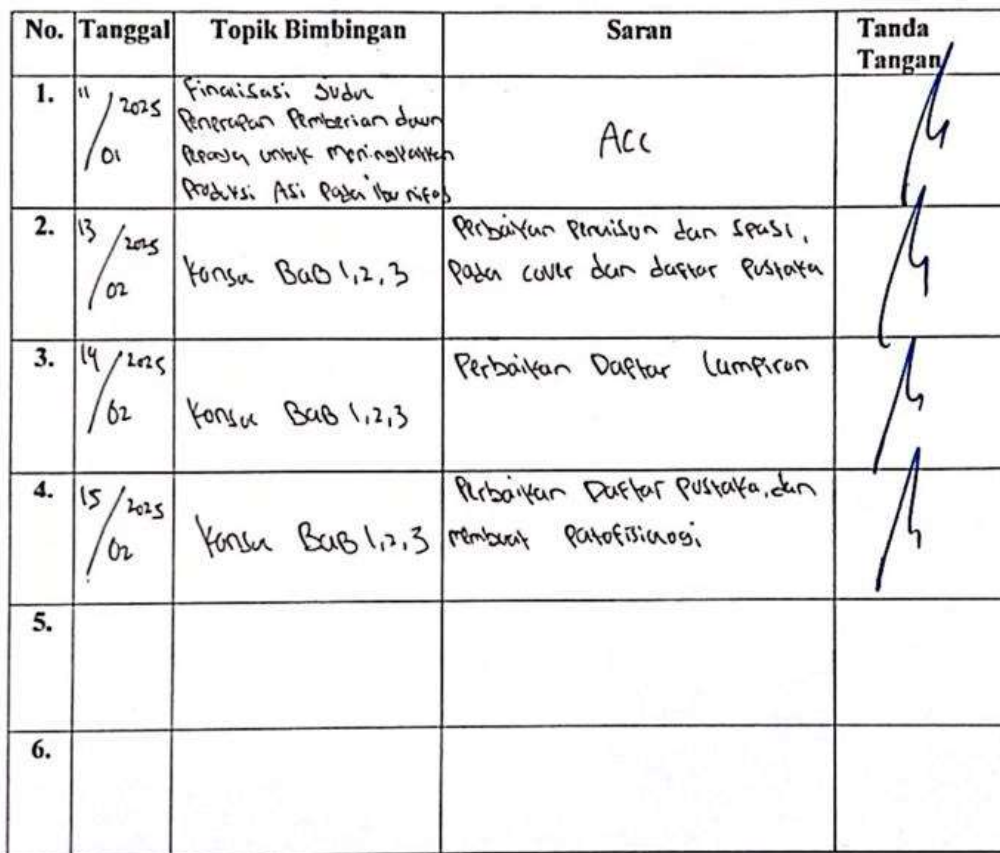 No. Tanggal Topik Bimbingan Saran Tanda Tangan
1. 11/01 2025
Finalisasi Judul
Penerapan Pemberian daun
Pepaya untuk Meningkatkan
Produksi Asi Pada ibu nifas
ACC
2. 13/02 2025
Konsul BaB 1,2,3
Perbaikan penulisan dan spasi,
pada cover dan daftar Pustaka
3. 14/02 2025
Konsul BaB 1,2,3
Perbaikan Daftar Lampiran
4. 15/02 2025
Konsul BaB 1,2,3
Perbaikan Daftar Pustaka, dan
membuat patofisiologi
5.
6.